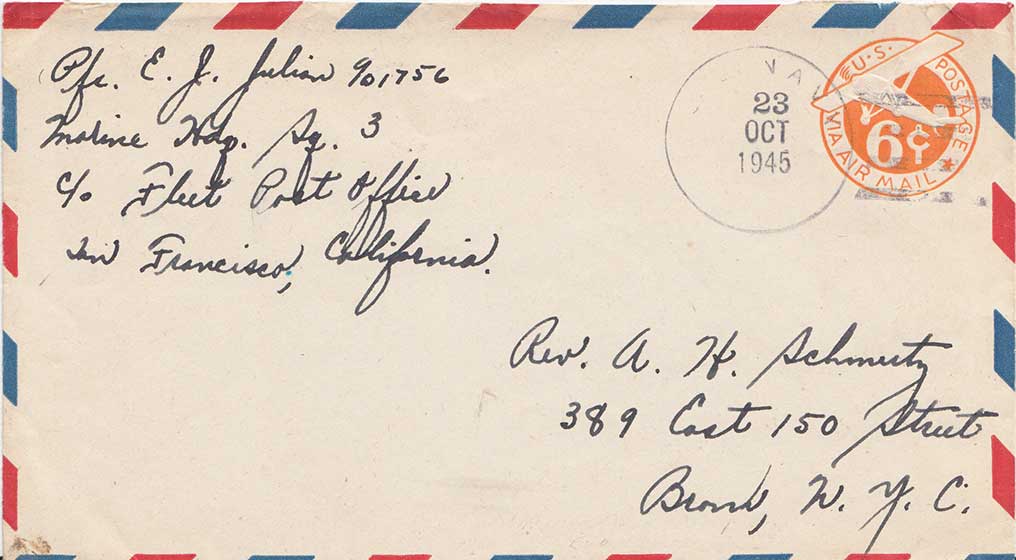 Pfc. E. J. Julian 901756
Marine Hdq. Sq. 3
c/o Fleet Post Office
San Francisco, California.
NAV
23
OCT
1945
U.S. POSTAGE
6¢
VIA AIR MAIL
Rev. A. H. Schmertz
389 East 150 Street
Bronx, N. Y. C.